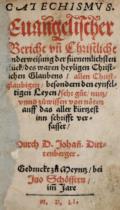 CATECHISMVS.
Euangelischer
Bericht vñ Christliche
vnderweisung der fürnemlichsten
stück des waren heyligen Christ-
lichen Glaubens / allen Christ-
glaubigen / besonders den eynfel-
tigen Leyen / sehr nütz
vnnd zuwissen von nöten
auff das aller kürtzest
inn schrifft ver-
fasset /
Durch D. Johañ. Diet-
tenberger.
Gedruckt zu Meyntz / bei
Juo Schöffern /
im Jare